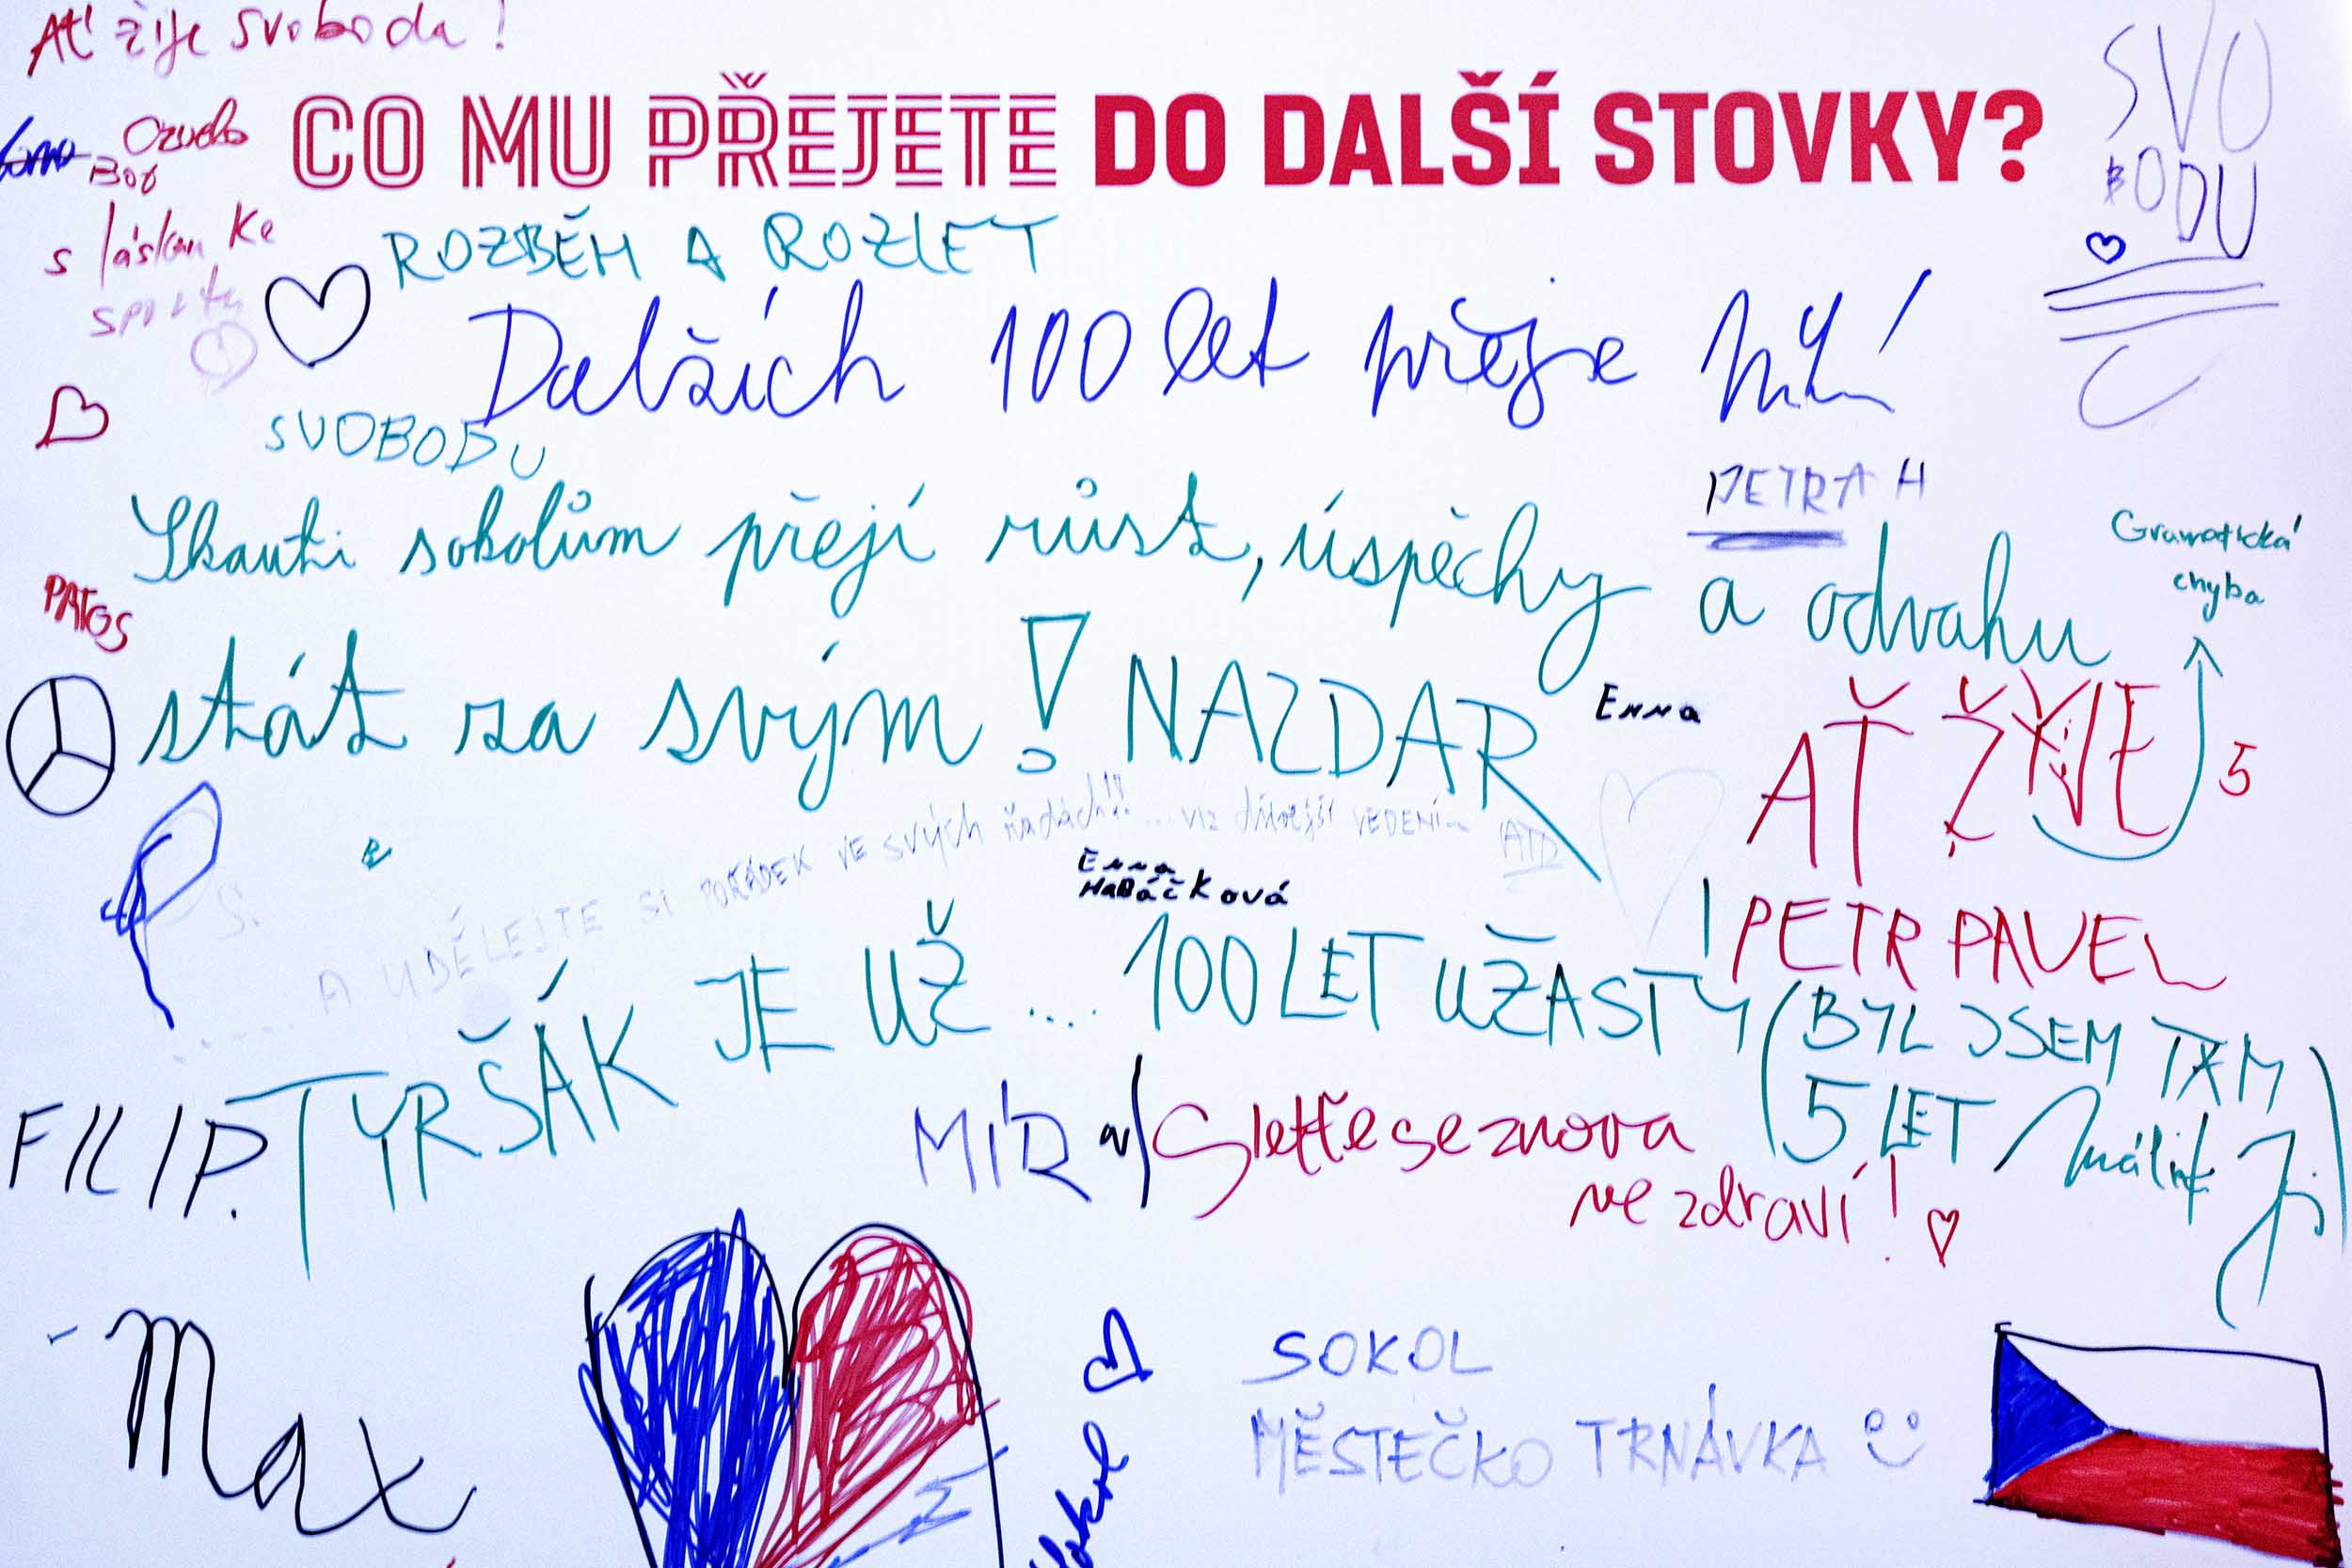 Ať žije svoboda!
CO MU PŘEJETE DO DALŠÍ STOVKY?
SVO
BODU
s láskou ke
sportu
ROZBĚH A ROZLET
Dalších 100 let přeje
SVOBODU
PETRA H
Skauti sokolům přejí růst, úspěchy a odvahu
Gramatická
chyba
PATOS
stát za svým! NAZDAR
Enna
AŤ ŽYJE
5
P.S.
.... A UDĚLEJTE SI POŘÁDEK VE SVÝCH řadách!!... viz dřívější VEDENÍ... ATD
Enna
HaBáčková
! PETR PAVEL
TYRŠÁK JE UŽ .... 100 LET ÚŽASTY (BYL JSEM TAM
5 LET
FILIP.
MÍR
Sletíře se znova
ve zdraví!
Max
SOKOL
MĚSTEČKO TRNÁVKA
Sokol